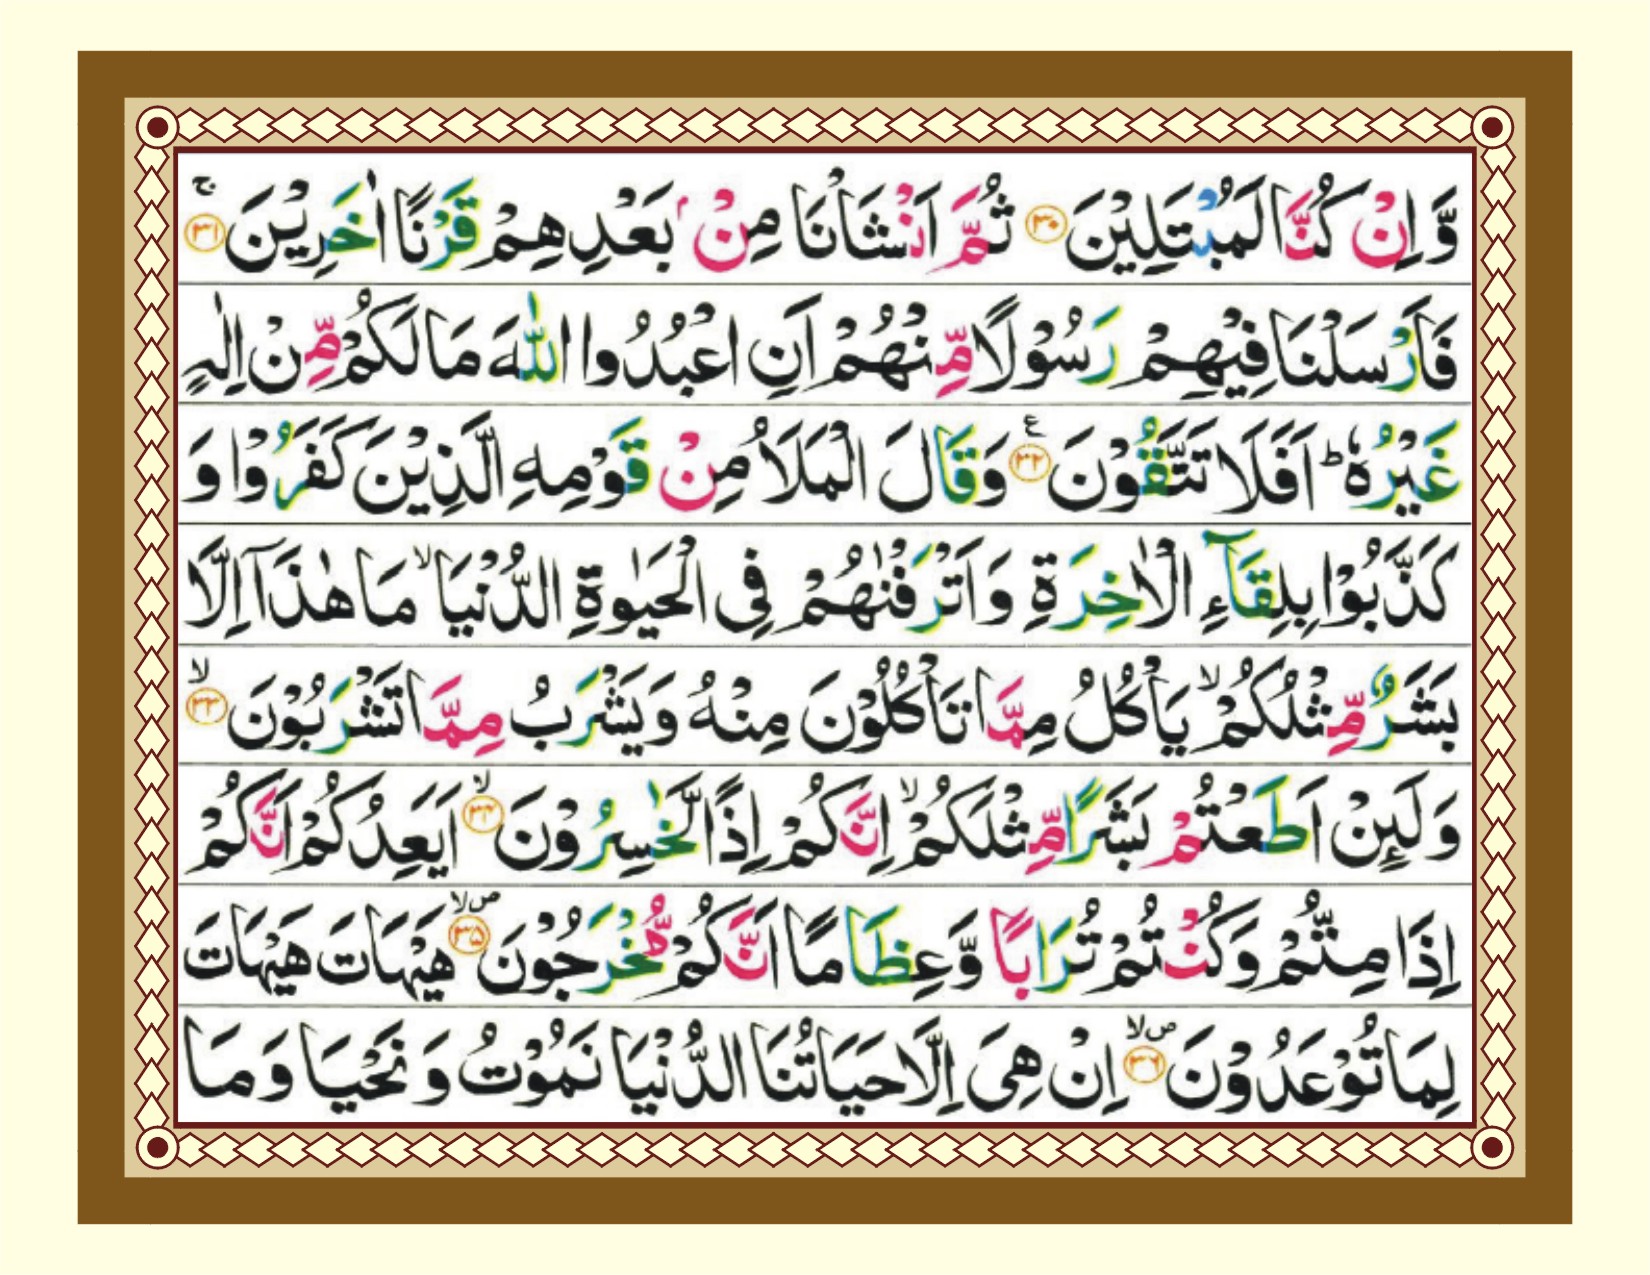 وَّاِنْ كُنَّا لَمُبْتَلِيْنَ ﴿۳۰﴾ ثُمَّ اَنْشَاْنَا مِنْۢ بَعْدِهِمْ قَرْنًا اٰخَرِيْنَ ﴿۳۱﴾ ۚ
فَاَرْسَلْنَا فِيْهِمْ رَسُوْلًا مِّنْهُمْ اَنِ اعْبُدُوا اللّٰهَ مَا لَكُمْ مِّنْ اِلٰهٍ
غَيْرُهٗ ؕ اَفَلَا تَتَّقُوْنَ ﴿۳۲﴾ ع وَقَالَ الْمَلَاُ مِنْ قَوْمِهِ الَّذِيْنَ كَفَرُوْا وَ
كَذَّبُوْا بِلِقَآءِ الْاٰخِرَةِ وَاَتْرَفْنٰهُمْ فِى الْحَيٰوةِ الدُّنْيَا ۙ مَا هٰذَاۤ اِلَّا
بَشَرٌ مِّثْلُكُمْ ۙ يَاْكُلُ مِمَّا تَاْكُلُوْنَ مِنْهُ وَيَشْرَبُ مِمَّا تَشْرَبُوْنَ ﴿۳۳﴾ ۙ
وَلَئِنْ اَطَعْتُمْ بَشَرًا مِّثْلَكُمْ ۙ اِنَّكُمْ اِذًا لَّخٰسِرُوْنَ ﴿۳۴﴾ ۙ اَيَعِدُكُمْ اَنَّكُمْ
اِذَا مِتُّمْ وَكُنْتُمْ تُرَابًا وَّعِظَامًا اَنَّكُمْ مُّخْرَجُوْنَ ﴿۳۵﴾ ص لا هَيْهَاتَ هَيْهَاتَ
لِمَا تُوْعَدُوْنَ ﴿۳۶﴾ ص لا اِنْ هِىَ اِلَّا حَيَاتُنَا الدُّنْيَا نَمُوْتُ وَ نَحْيَا وَمَا